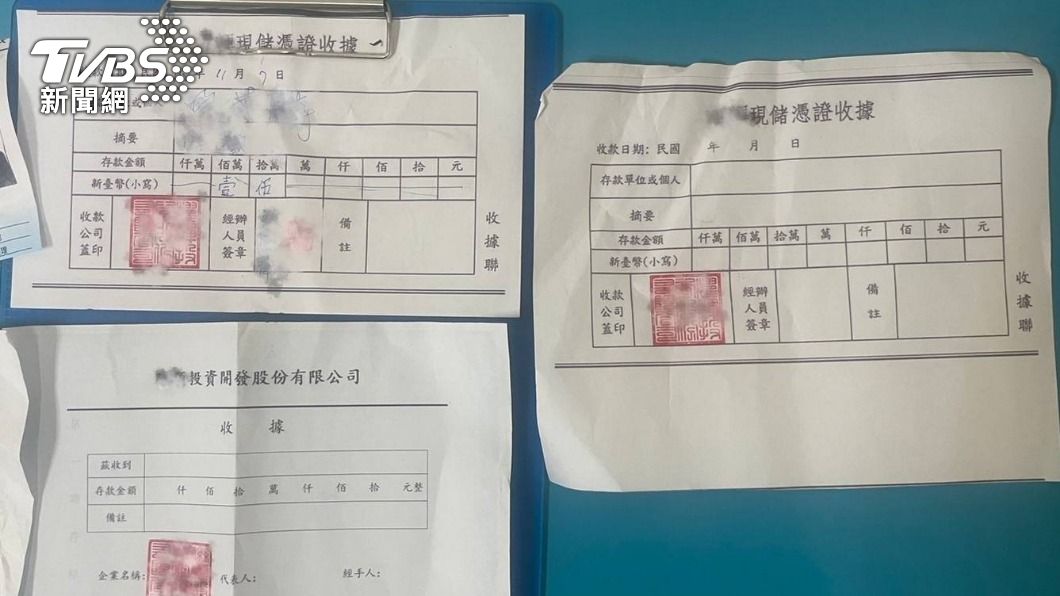 TVBS
新聞網
現儲憑證收據
年 11 月 7 日
摘要
存款金額 仟萬 佰萬 拾萬 萬 仟 佰 拾 元
新臺幣(小寫) 壹 伍
收款公司蓋印 經辦人員簽章 備註
收據聯
現儲憑證收據
收款日期:民國 年 月 日
存款單位或個人
摘要
存款金額 仟萬 佰萬 拾萬 萬 仟 佰 拾 元
新臺幣(小寫)
收款公司蓋印 經辦人員簽章 備註
收據聯
投資開發股份有限公司
收 據
茲收到
存款金額 仟 佰 拾 萬 仟 佰 拾 元整
備註
企業名稱: 代表人: 經手人: